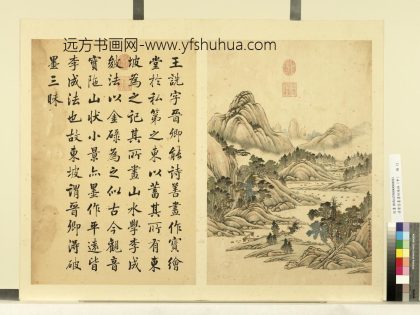 远方书画网-www.yfshuhua.com
王詵字晉卿能詩善畫作寶繪
堂於私第之東以蓄其所有東
坡為之記其所畫山水學李成
皴法以金碌為之似古今觀音
寶陁山狀小景亦墨作平遠皆
李成法也故東坡謂晉卿得破
墨三昧